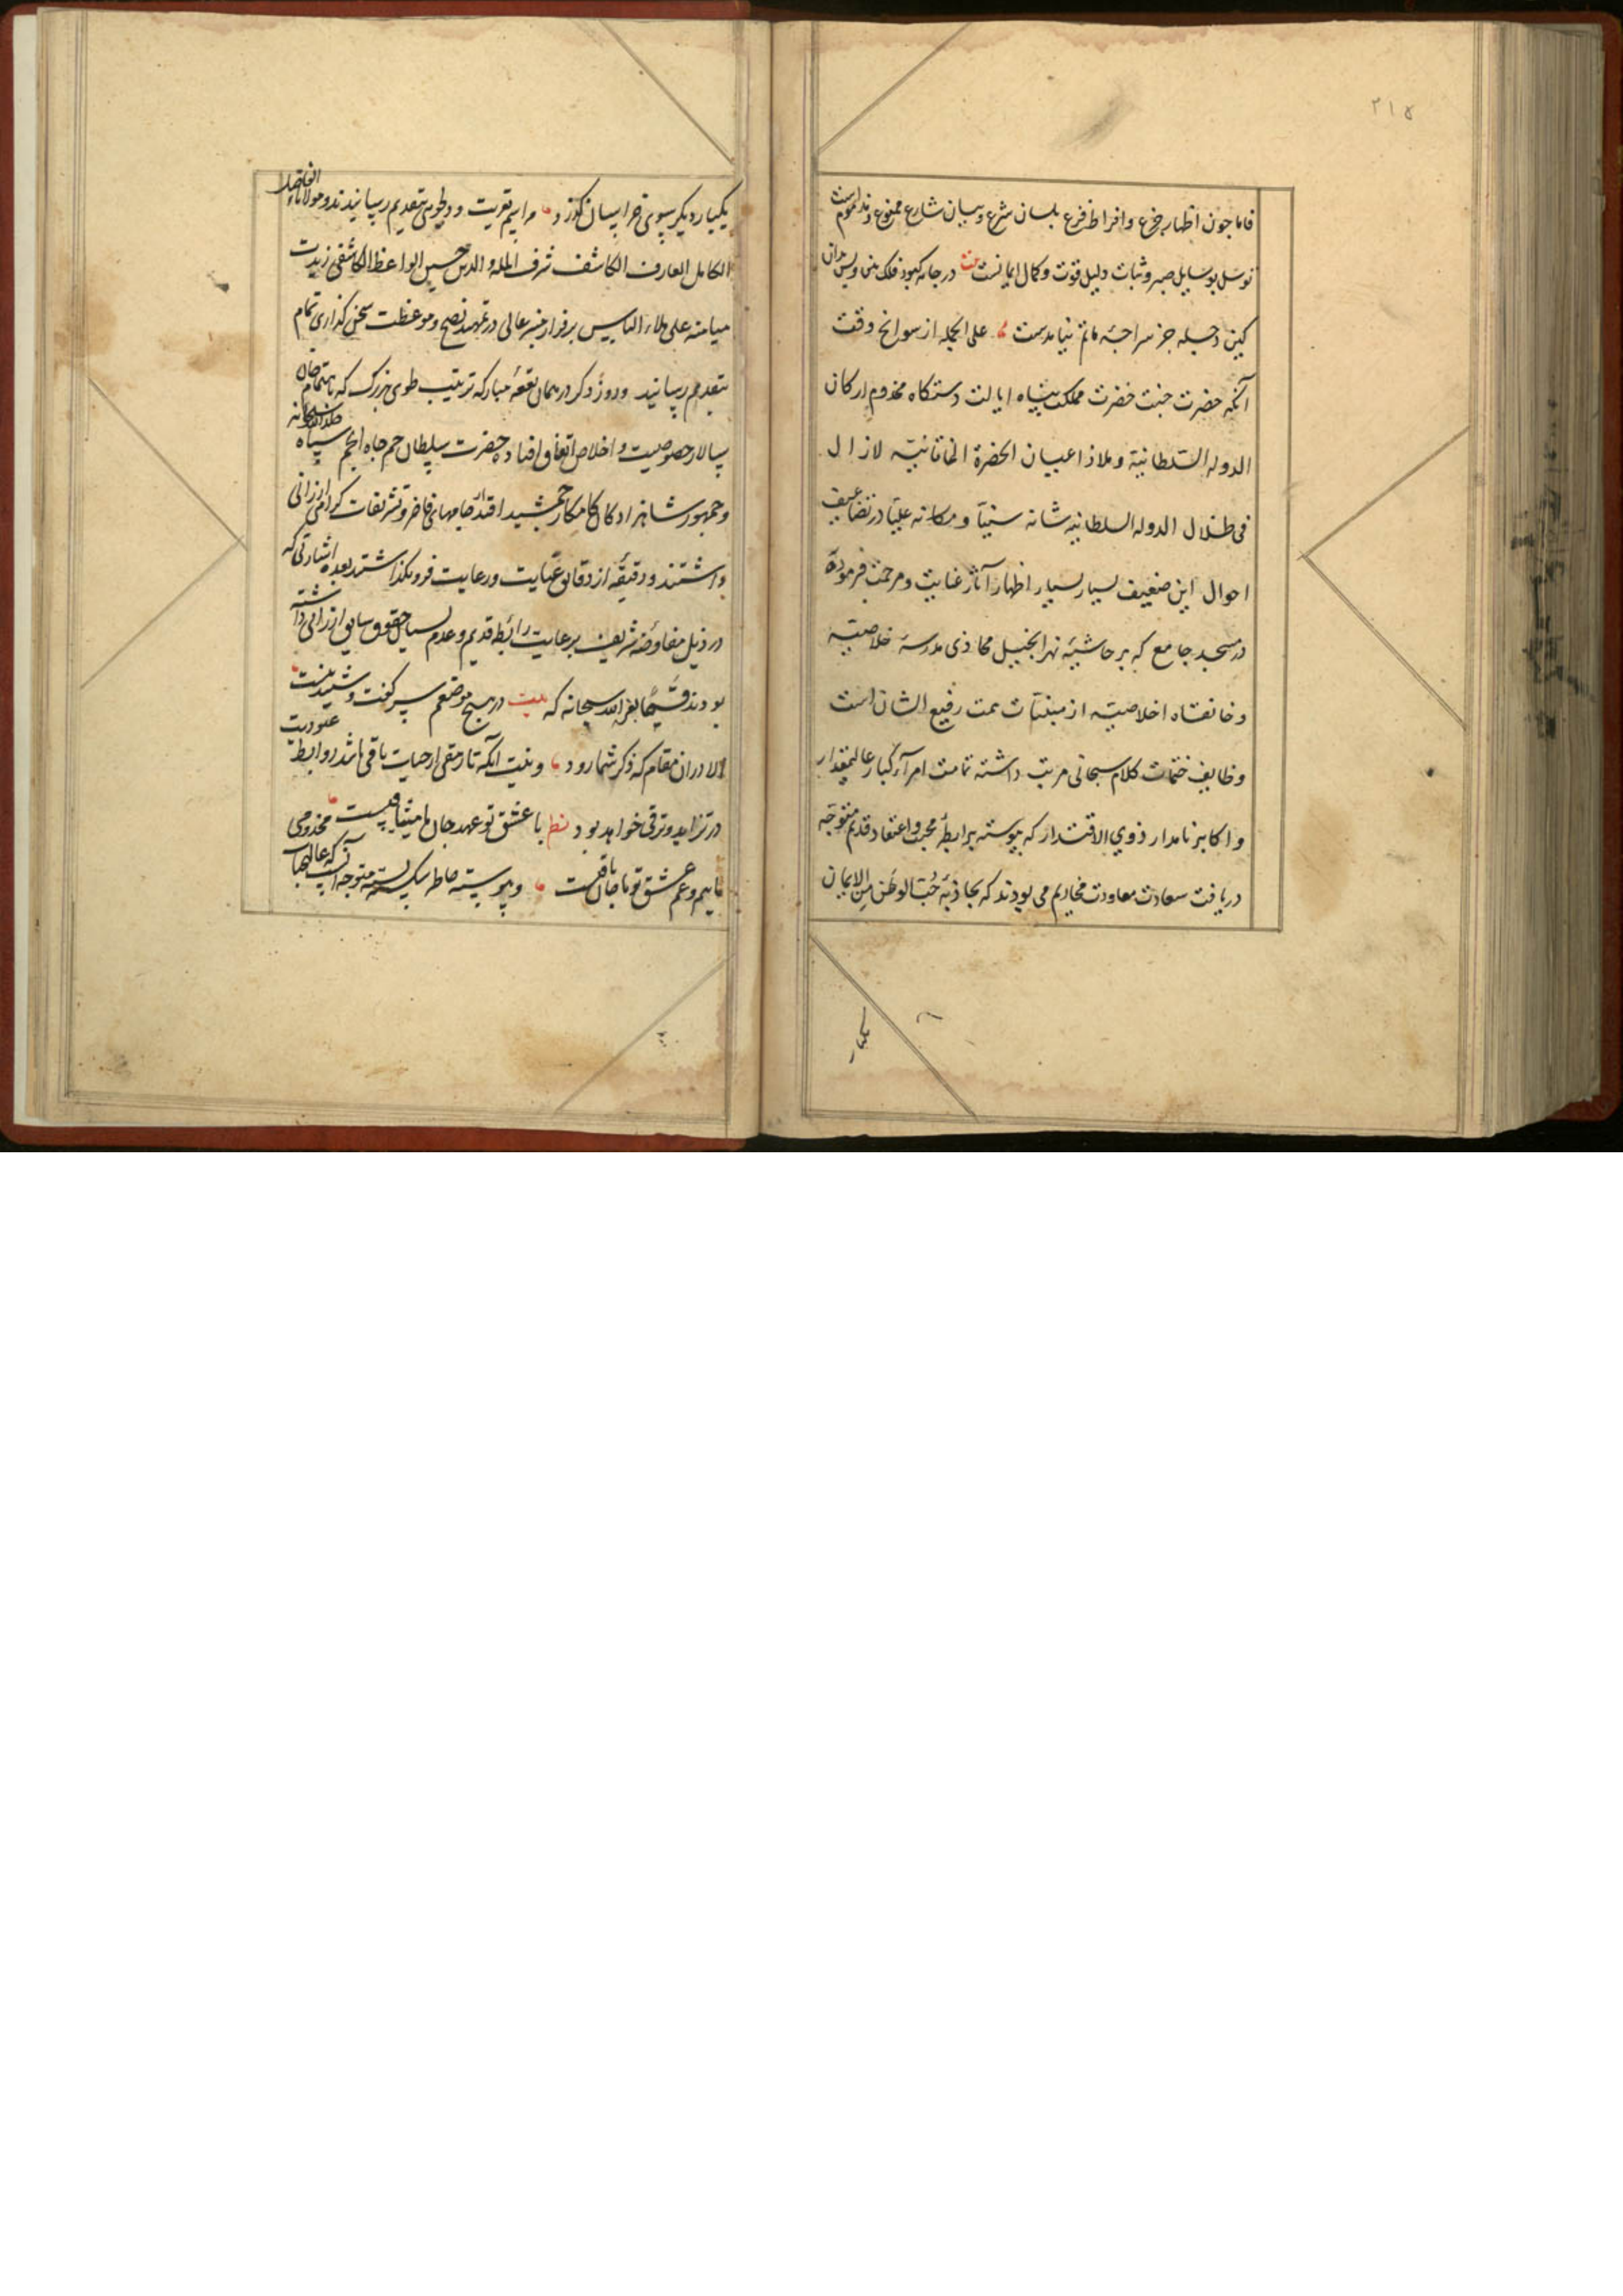 ۲۱۵
فاما چون اظهار جزع و افراط فزع بلسان شرع و بیان شارع ممنوع و مذموم است
توسل بوسایل صبر و ثبات دلیل قوت و کمال ایمانست بیت در جامه کبود فلک بین و پس بدان
کین جز سراچه ماتم نیامدست علی الجمله از سوانح وقت
آنکه حضرت جنت حضرت مملکت پناه ایالت دستکاه مخدوم ارکان
الدوله السلطانیة و ملاذ اعیان الحضرة الخاقانیة لازال
فی ظلال الدوله السلطانیه شانه سنیّا و مکانه علیّا در تضاعیف
احوال این ضعیف بسیار بسیار اظهار آثار عنایت و مرحمت فرموده
در مسجد جامع که بر حاشیهٔ نهر انجیل محاذی مدرسهٔ خلاصیّه
و خانقاه اخلاصیّه از مبنیّات همت رفیع الشان است
وظایف ختمات کلام سبحانی مرتب داشته تمامت امرآء کبار عالیمقدار
و اکابر نامدار ذوی الاقتدار که پیوسته برابطهٔ محبت و اعتقاد قدیم متوجّه
دریافت سعادت معاودت مخادیم می بودند که بجاذبهٔ حُبّ الوطن من الایمان
یکبار دیگر بسوی خراسان کذرد مراسم تعزیت و دلجویی بتقدیم رسانیدند و مولانا الفاضل
الکامل العارف الکاشف شرف المله و الدین حسین الواعظ الکاشفی زیدت
میامنه علی ملاء الناس بر فراز منبر عالی در تمهید نصح و موعظت سخن کذاری تمام
بتقدیم رسانید و روز دکر در همان بقعهٔ مبارکه ترتیب طوی بزرک که باهتمام خان
سالار خصوصیت و اخلاص اتفاق افتاده حضرت سلطان جم جاه انجم سپاه
و جمهور شاهزادکان کامکار جمشید اقتدار جامهای فاخر و تشریفات کرامی ارزانی
داشتند و دقیقه از دقایق عنایت و رعایت فرو نکذاشتند بعده اشارتی که
در ذیل مفاوضه شریف برعایت رابطه قدیم و عدم حقوق سابق ارزانی داشته
بودند بعز الله سبحانه که بیت در هیچ موضعم سر کفت و شنید نیست
الا در آن مقام که ذکر شما رود و بنیت آنکه تا رمقی از حیات باقی باشد روابط عبودیت
در تزاید و ترقی خواهد بود نظم با عشق تو عهد جان ما میثاقیست مخدومی
ماییم و غم عشق تو تا جان باقیست و پیوسته خاطر شکسته بسته متوجه آنست که عالیجناب
یکبار